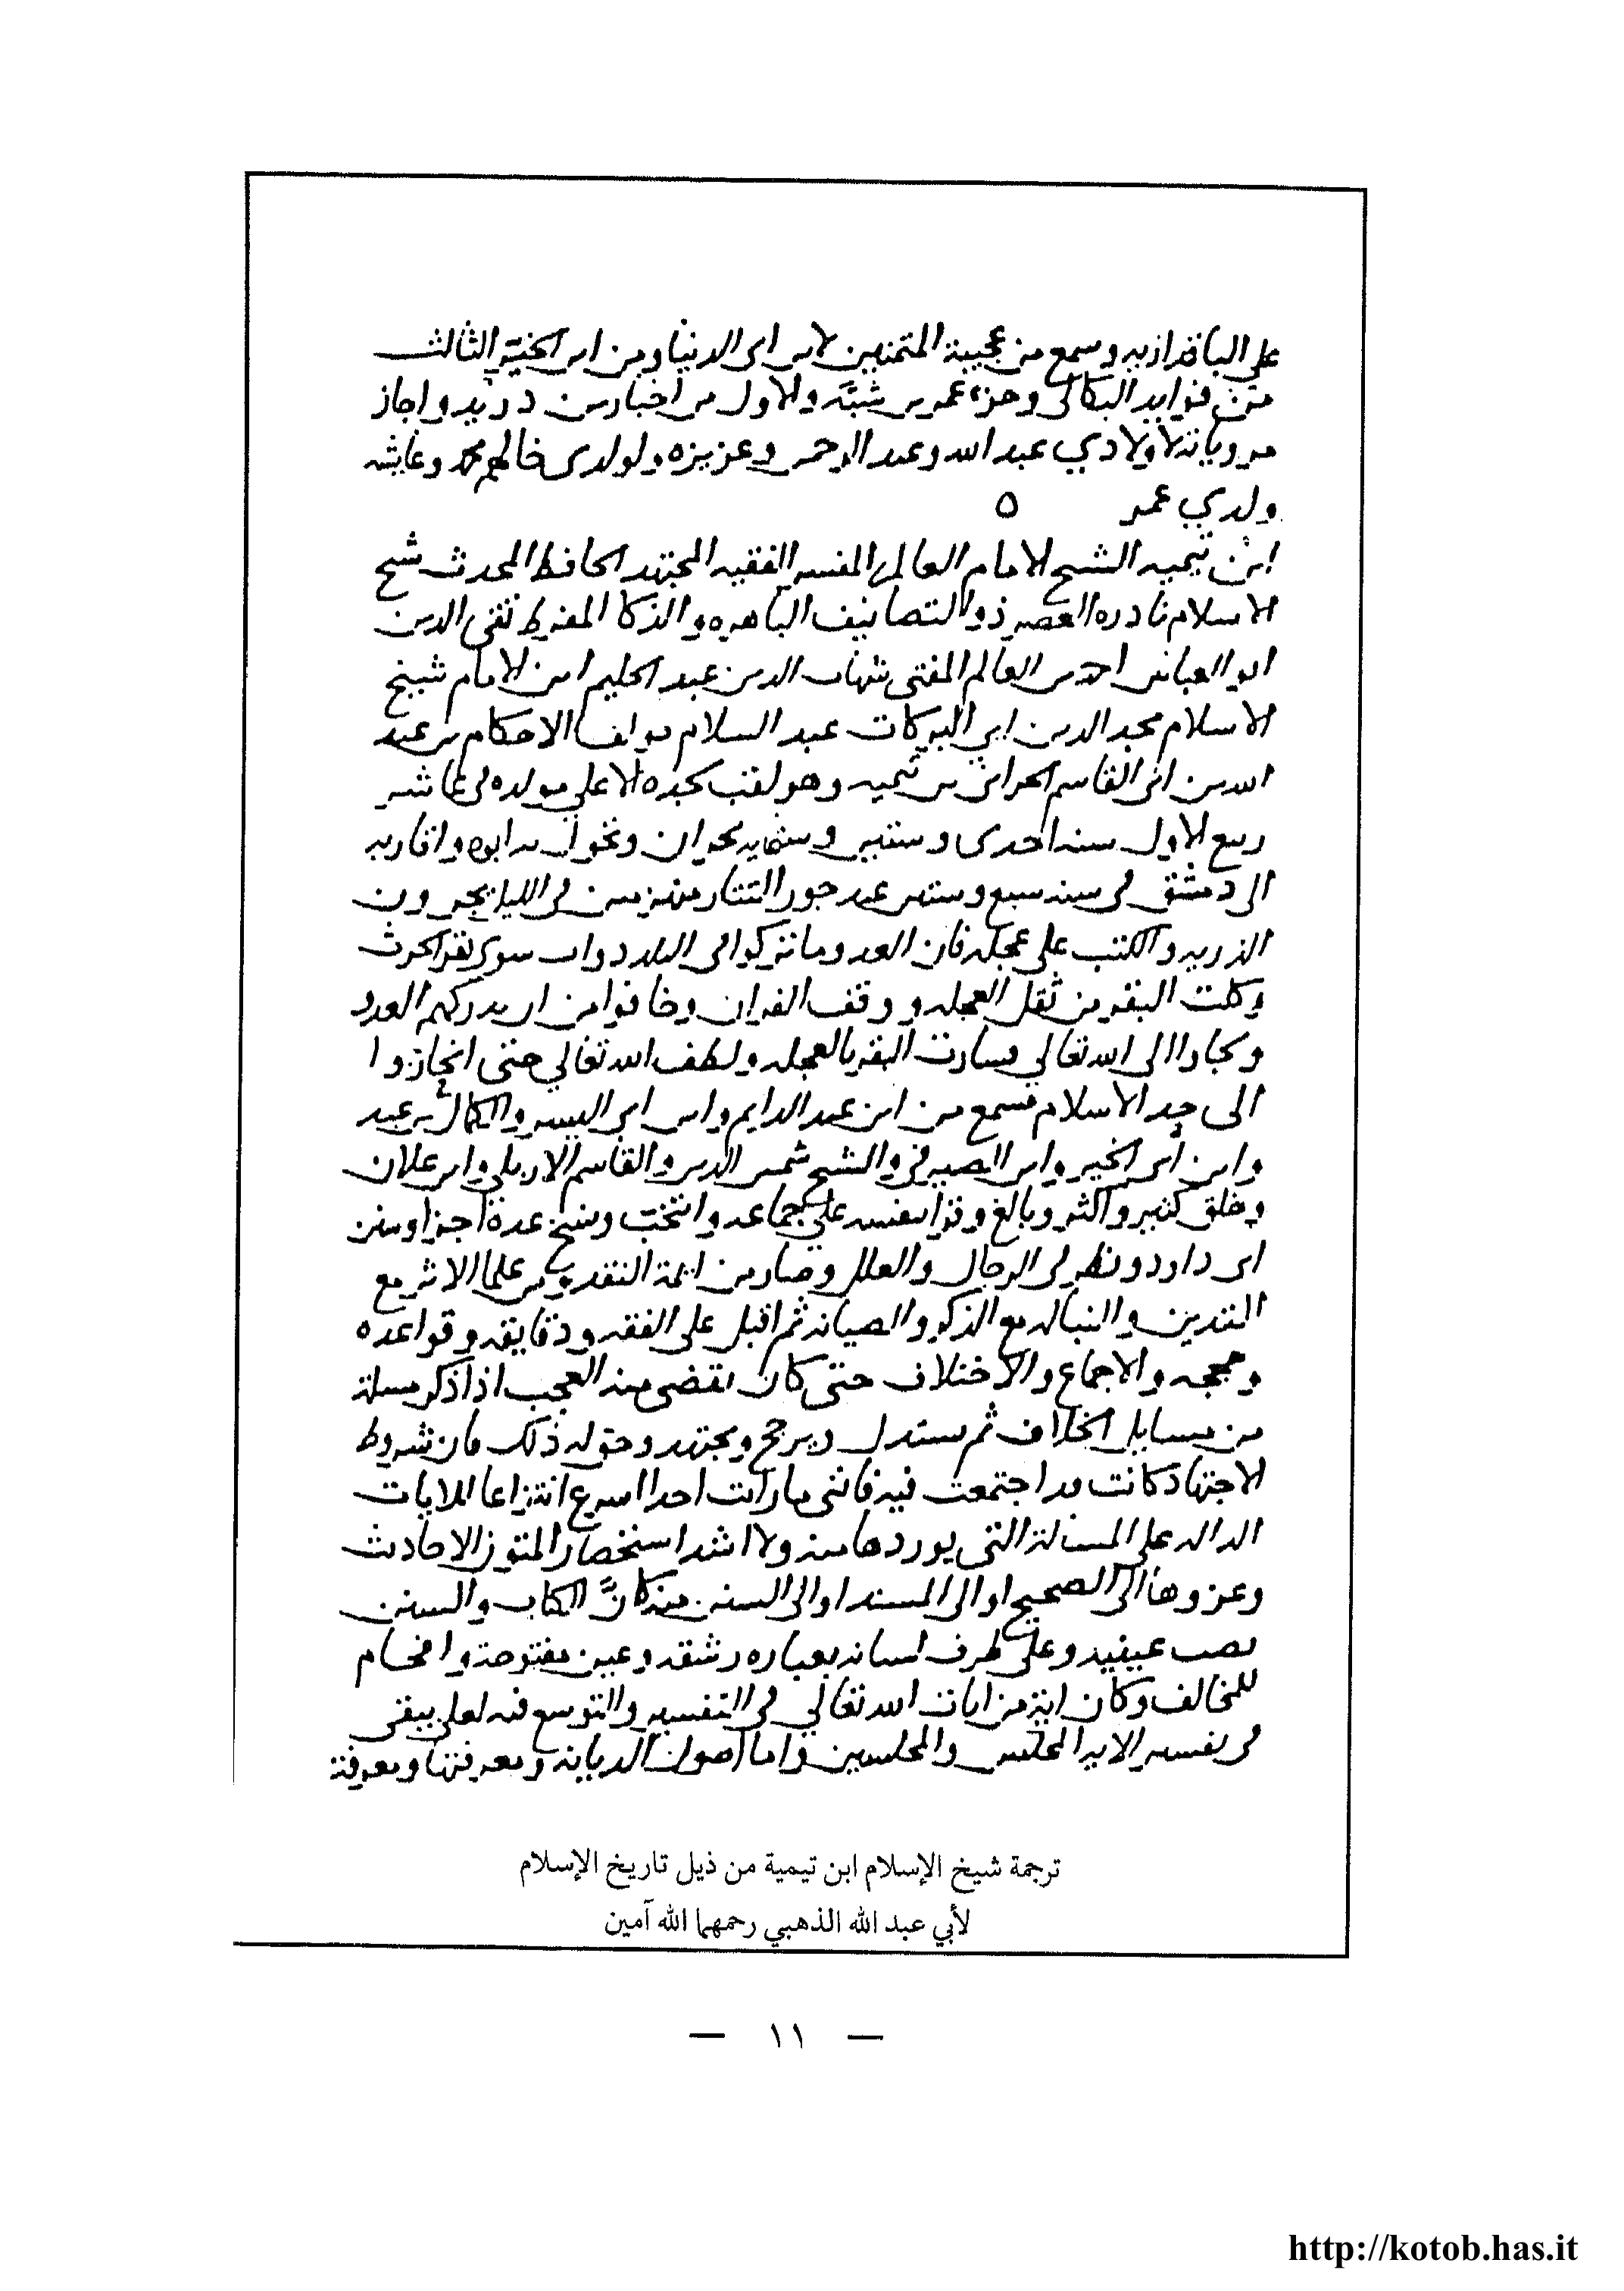 على الباقداريه وسمع من عجيبة المتمنين لابن ابى الدنيا ومن ابن الخير الثالث
من فوايد البكالى وجزء عمر بن شبَّه والاول من اخبار بن دريد واجاز
مروياته لاولادي عبد الله وعبد الرحمن وعزيزه ولولدى خالهم محمد وعايشه
ولدي عمر ٥
ابن تيميه الشيخ الامام العالم المفسر الفقيه المجتهد الحافظ المحدث شيخ
الاسلام نادره العصر ذو التصانيف الباهره والذكا المفرط تقى الدين
ابو العباس احمد بن العالم المفتى شهاب الدين عبد الحليم ابن الامام شيخ
الاسلام مجد الدين ابي البركات عبد السلام مولف الاحكام بن عبد
الله بن ابى القاسم الحرانى بن تيميه وهو لقب لجده الاعلى مولده فى عاشر
ربيع الاول سنه احدى وستين وستمايه بحران وتحول به ابوه واقاربه
الى دمشق فى سنه سبع وستين عند جور التتار منهزمين فى الليل يجرون
الذريه والكتب على عجله فان العدو ما تركوا فى البلد دواب سوى بقر الحرث
وكلت البقر من ثقل العجله ووقف الفران وخافوا من ان يدركهم العدو
ولجاوا الى الله تعالي فسارت البقر بالعجله ولطف الله تعالي حتى انحازوا
الى حد الاسلام فسمع من ابن عبد الدايم وابن ابى اليسر والكمال بن عبد
وابن أبى الخير وابن الصيرفى والشيخ شمس الدين والقاسم الاربلى وابن علان
وخلق كثير واكثر وبالغ وقرا بنفسه على جماعه وانتخب ونسخ عدة اجزا وسنن
ابى داود ونظر فى الرجال والعلل وصار من ايمة النقد ومن علما الاثر مع
التدين والنباله مع الذكر والصيانه ثم اقبل على الفقه ودقايقه وقواعده
وحججه والاجماع والاختلاف حتى كان يقضى منه العجب اذا ذكر مسلة
من مسايل الخلاف ثم يستدل ويرجح ويجتهد وحق له ذلك فان شروط
الاجتهاد كانت قد اجتمعت فيه فاننى ما رايت احدا اسرع انتزاعا للايات
الداله على المسئلة التى يوردها منه ولا اشد استحضار المتون الاحاديث
وعزوها الى الصحيح او الى المسند او الى السنن منه كانَّ الكتاب والسنن
نصب عينيه وعلى طرف لسانه بعباره رشقه وعين مفتوحة وافحام
للمخالف وكان اية من ايات الله تعالي فى التفسير والتوسع فيه لعله يبقى
فى تفسير الايه المجلس والمجلسين واما اصول الديانه ومعرفتها ومعرفة
ترجمة شيخ الإسلام ابن تيمية من ذيل تاريخ الإسلام
لأبي عبد الله الذهبي رحمهما الله آمين
— ١١ —
http://kotob.has.it